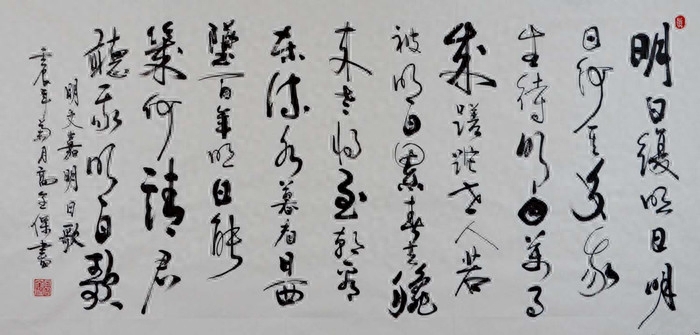 明日復明日明
日何其多我
生待明日萬事
成蹉跎世人若
被明日累春去秋
来老将至朝看
东流水暮看日西
墜百年明日能
幾何請君
聽我明日歌
明文嘉明日歌
壬辰年菊月書